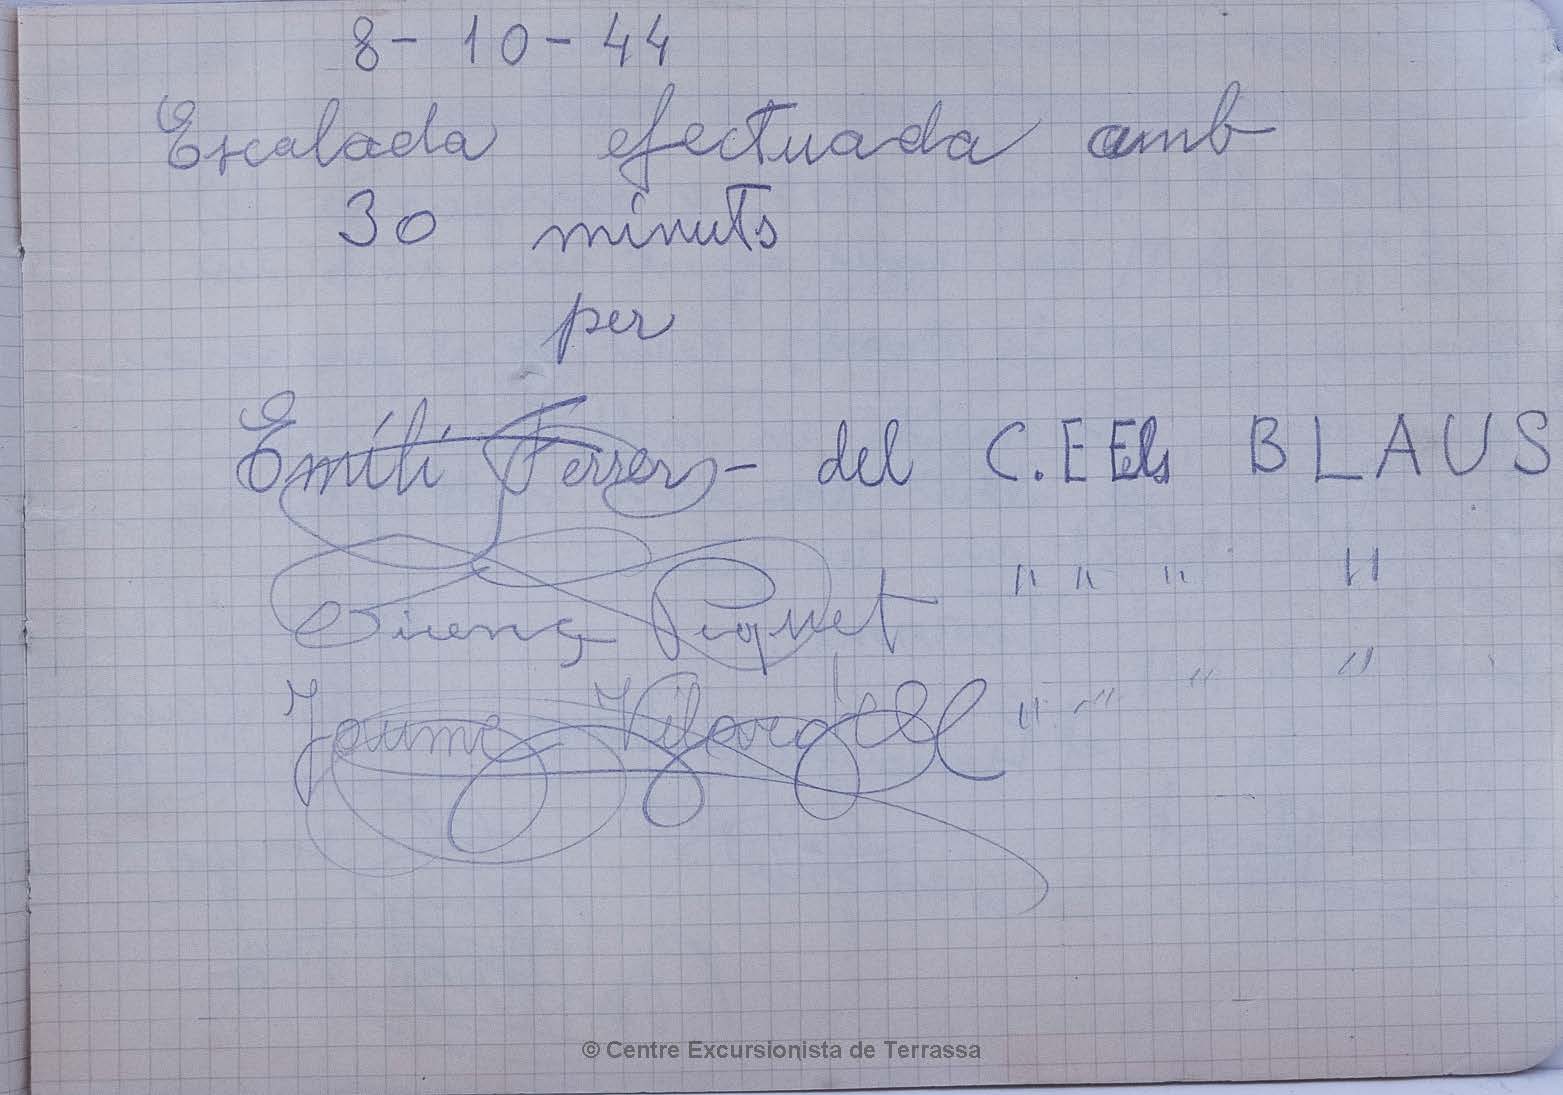 8-10-44
Escalada efectuada amb
30 minuts
per
Emili Ferrer - del C.E Els BLAUS
Piquet " " " "
Jaume " " " "
© Centre Excursionista de Terrassa